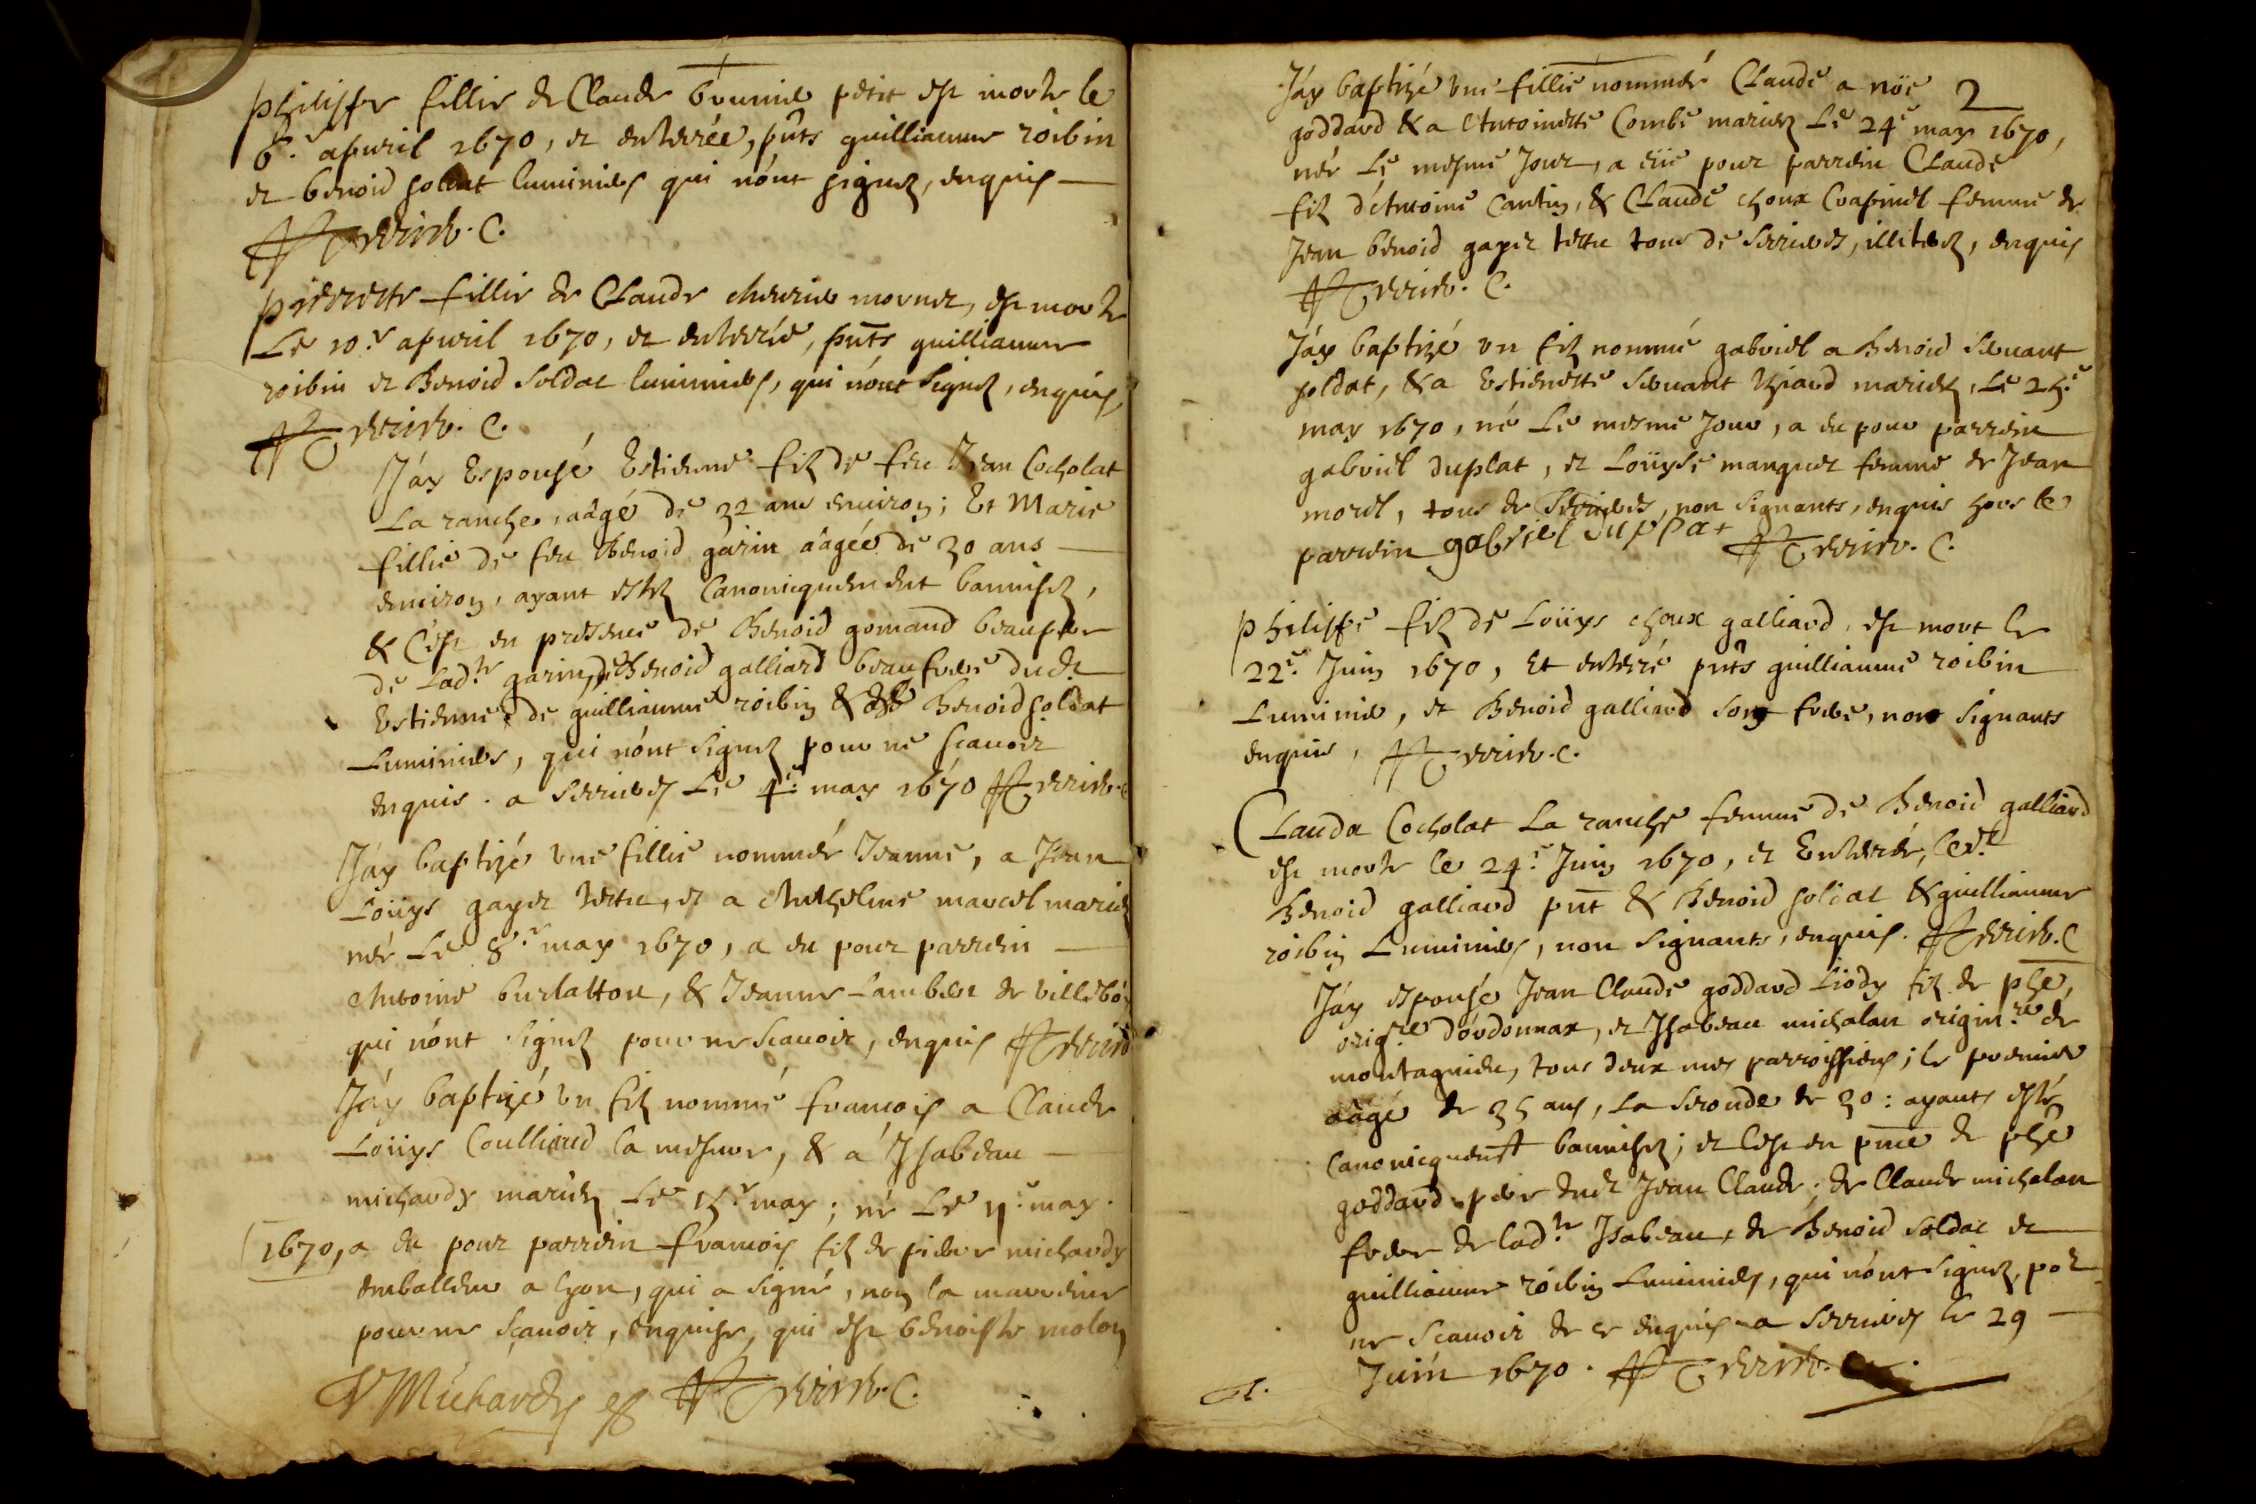 philippe fillie de Claude brunier petit est morte le
6.e apuril 1670, et enterrée, pñts guilliaume roibin
et benoid soldat luminiers qui n'ont signez, enquis
Terrier. C.
pierrette fillie de Claude cheurier mornet, est morte
Le 10.e apuril 1670, et enterrée, pñts guilliaume
roibin et Benoid soldat luminiers, qui n'ont signez, enquis,
Terrier. C.
J'ay Espousé Estienne filz de feu Jean Cocholat
La ranche, aâgé de 32 ans enuiron; Et Marie
fillie de feu Benoid garin aâgée de 30 ans
enuiron, ayant estez Canonicquement bannisez,
& C'est en presence de Benoid gomand beaupere
de Lad.te garin, de Benoid galliard beaufrere dud.t
Estienne, de guilliaume roibin & de Benoid soldat
Luminiers, qui n'ont signez pour ne scauoir
enquis. a Serrieres Le 4.e may 1670 Terrier. C
J'ay baptizé vne fillie nommée Jeanne, a Jean
Loüys gayet tettu, et a Anthelme marcel mariez
née Le 8.e may 1670, a eu pour parrein
Antoine burlatton, & Jeanne Lambert de villebo
qui n'ont signez pour ne scauoir, enquis Terrier
J'ay baptizé vn filz nommé francois a Claude
Loüys Coulliard la mesure, & a Jsabeau
michaudy mariez Le 15.e may; né Le 11.e may.
1670, a eu pour parrein francois filz de pierre michaudy
emballeur a lyon, qui a signé, non la marreine
pour ne scauoir, enquise, qui est benoiste molon
F Michardy Terrier. C.
2
J'ay baptizé vne fillie nommée Claude a noë
goddard & a Antoinette Combe mariez Le 24.e may 1670,
née Le mesme Jour, a eüe pour parrein Claude
filz d'Antoine Cantin, & Claude choux Coapinel femme de
Jean benoid gayet tettu tous de Serrieres, illiterez, enquis
Terrier. C.
J'ay baptizé vn filz nommé gabriel a Benoid seruant
soldat, & a Estiennette seruant thiard mariez, Le 25.e
may 1670, né Le mesme Jour, a eu pour parrein
gabriel duplat, et Loüyse manguet femme de Jean
morel, tous de Serrieres, non signants, enquis hors le
parrein gabriel duppat Terrier. C.
philippe filz de Loüys choux galliard, est mort le
22.e Juin 1670, Et enterré pñts guilliaume roibin
Luminier, et Benoid galliard son frere, non signants
enquis, Terrier. C.
Clauda Cocholat La ranche femme de Benoid galliard
est morte le 24.e Juin 1670, et Enterrée, led.t
Benoid galliard pñt & Benoid soldat & guilliaume
roibin Luminiers, non signants, enquis. Terrier. C
J'ay espousé Jean Claude goddard Liody filz de phe,
orig.re d'ordonnax, et Jsabeau michalan origin.re de
montagnieu, tous deux mes parroissiens; le premier
aâgé de 35 ans, La seconde de 30: ayants estés
Canonicquem̃t bannisez; et C'est en pñce de phe
goddard pere dud.t Jean Claude, de Claude michalan
frere de lad.te Jsabeau, de Benoid soldat et
guilliaume roibin Luminiers, qui n'ont signez, por
ne scauoir de ce enquis a Serrieres le 29
Juin 1670. Terrier. C.